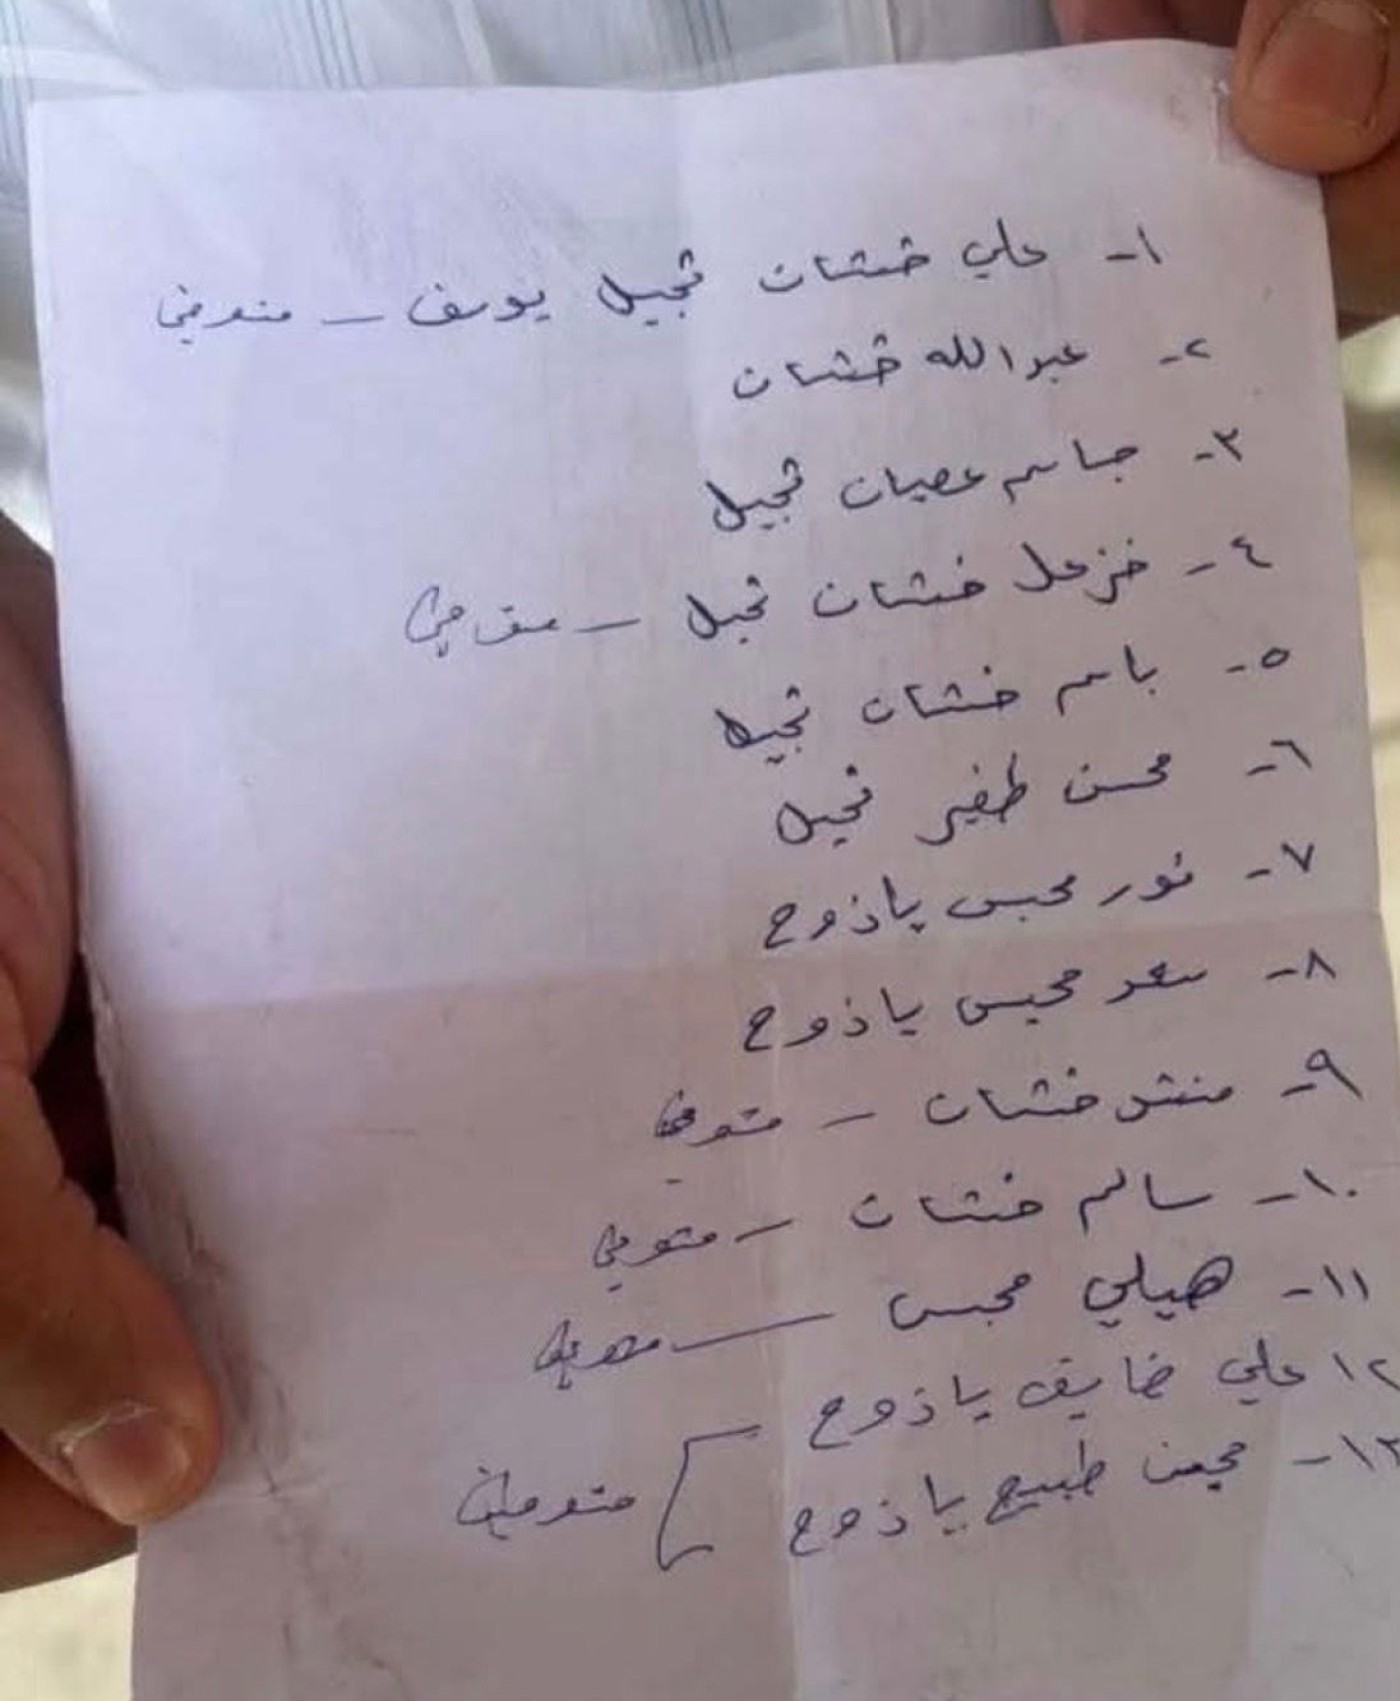 ١- علي خشان ثجيل يوسف - متوفي
٢- عبدالله خشان
٣- جاسم عصبان ثجيل
٤- خزعل خشان ثجيل - متوفي
٥- باسم خشان ثجيل
٦- محسن ظفير ثجيل
٧- نور محيسن ياذوح
٨- سعد محيسن ياذوح
٩- خشان - متوفي
١٠- سالم خشان - متوفي
١١- محيسن - متوفي
١٢ علي ضايف ياذوح
١٣- ياذوح
متوفين